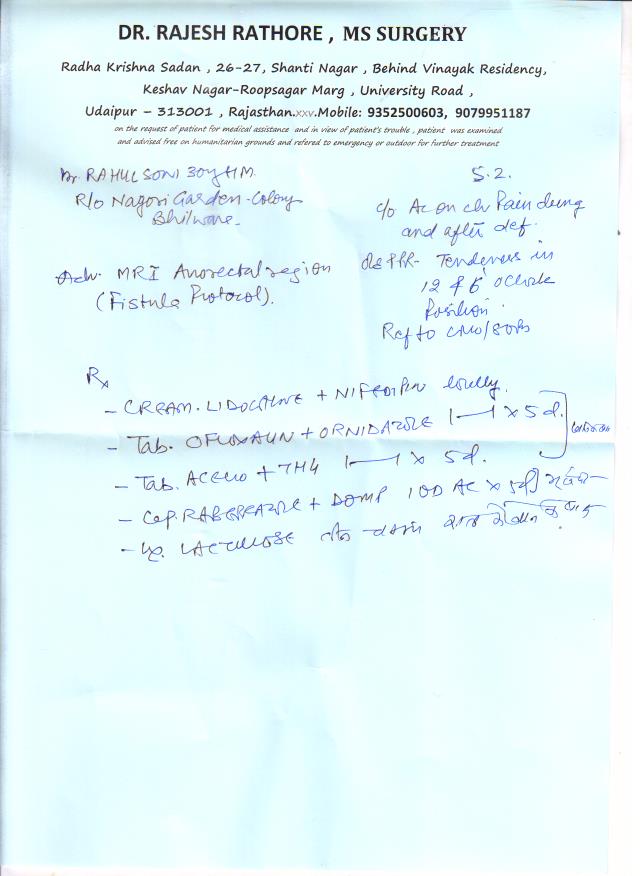 DR. RAJESH RATHORE , MS SURGERY
Radha Krishna Sadan , 26-27, Shanti Nagar , Behind Vinayak Residency,
Keshav Nagar-Roopsagar Marg , University Road ,
Udaipur – 313001 , Rajasthan.xxv.Mobile: 9352500603, 9079951187
on the request of patient for medical assistance and in view of patient's trouble , patient was examined
and advised free on humanitarian grounds and refered to emergency or outdoor for further treatment
RAHUL SONI 30y HM.
R/o Nagori Garden-Colony
Bhilware
5.2.
c/o Ac on ch Pain during
and after def.
Adv. MRI Anorectal region
(Fistula Protocol).
PR- Tenderness in
12 & 6 oclock
Position.
Ref to
Rx
- CREAM. LIDOCAINE + NIFEDIPIN locally.
- Tab. OFLOXACIN + ORNIDAZOLE 1—1 x 5d.
- Tab. ACECLO + TH4 1—1 x 5d.
- Cap RABEPRAZOLE + DOMP 1OD AC x 5d
- LACTULOSE